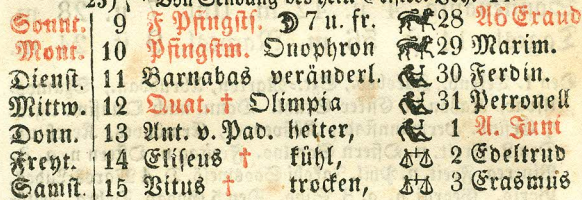 Sonnt. 9 F Pfingstf. ☽ 7 u. fr. 28 A6 Eraud
Mont. 10 Pfingstm. Onophron 29 Maxim.
Dienst. 11 Barnabas veränderl. 30 Ferdin.
Mittw. 12 Quat. † Olimpia 31 Petronell
Donn. 13 Ant. v. Pad. heiter, 1 A. Juni
Freyt. 14 Eliseus † kühl, 2 Edeltrud
Samst. 15 Vitus † trocken, 3 Erasmus